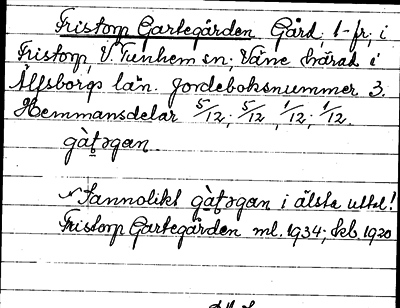 Fristorp Gartegården Gård, 1-fr, i
Fristorp, V. Tunhem sn; Väne härad i
Älfsborgs län. Jordeboksnummer 3.
Hemmansdelar 5/12; 5/12, 1/12; 1/12.
gàt̬əgan.
Sannolikt gàt̬əgan i älsta uttal!
Fristorp Gartegården ml. 1934; Ekb. 1920